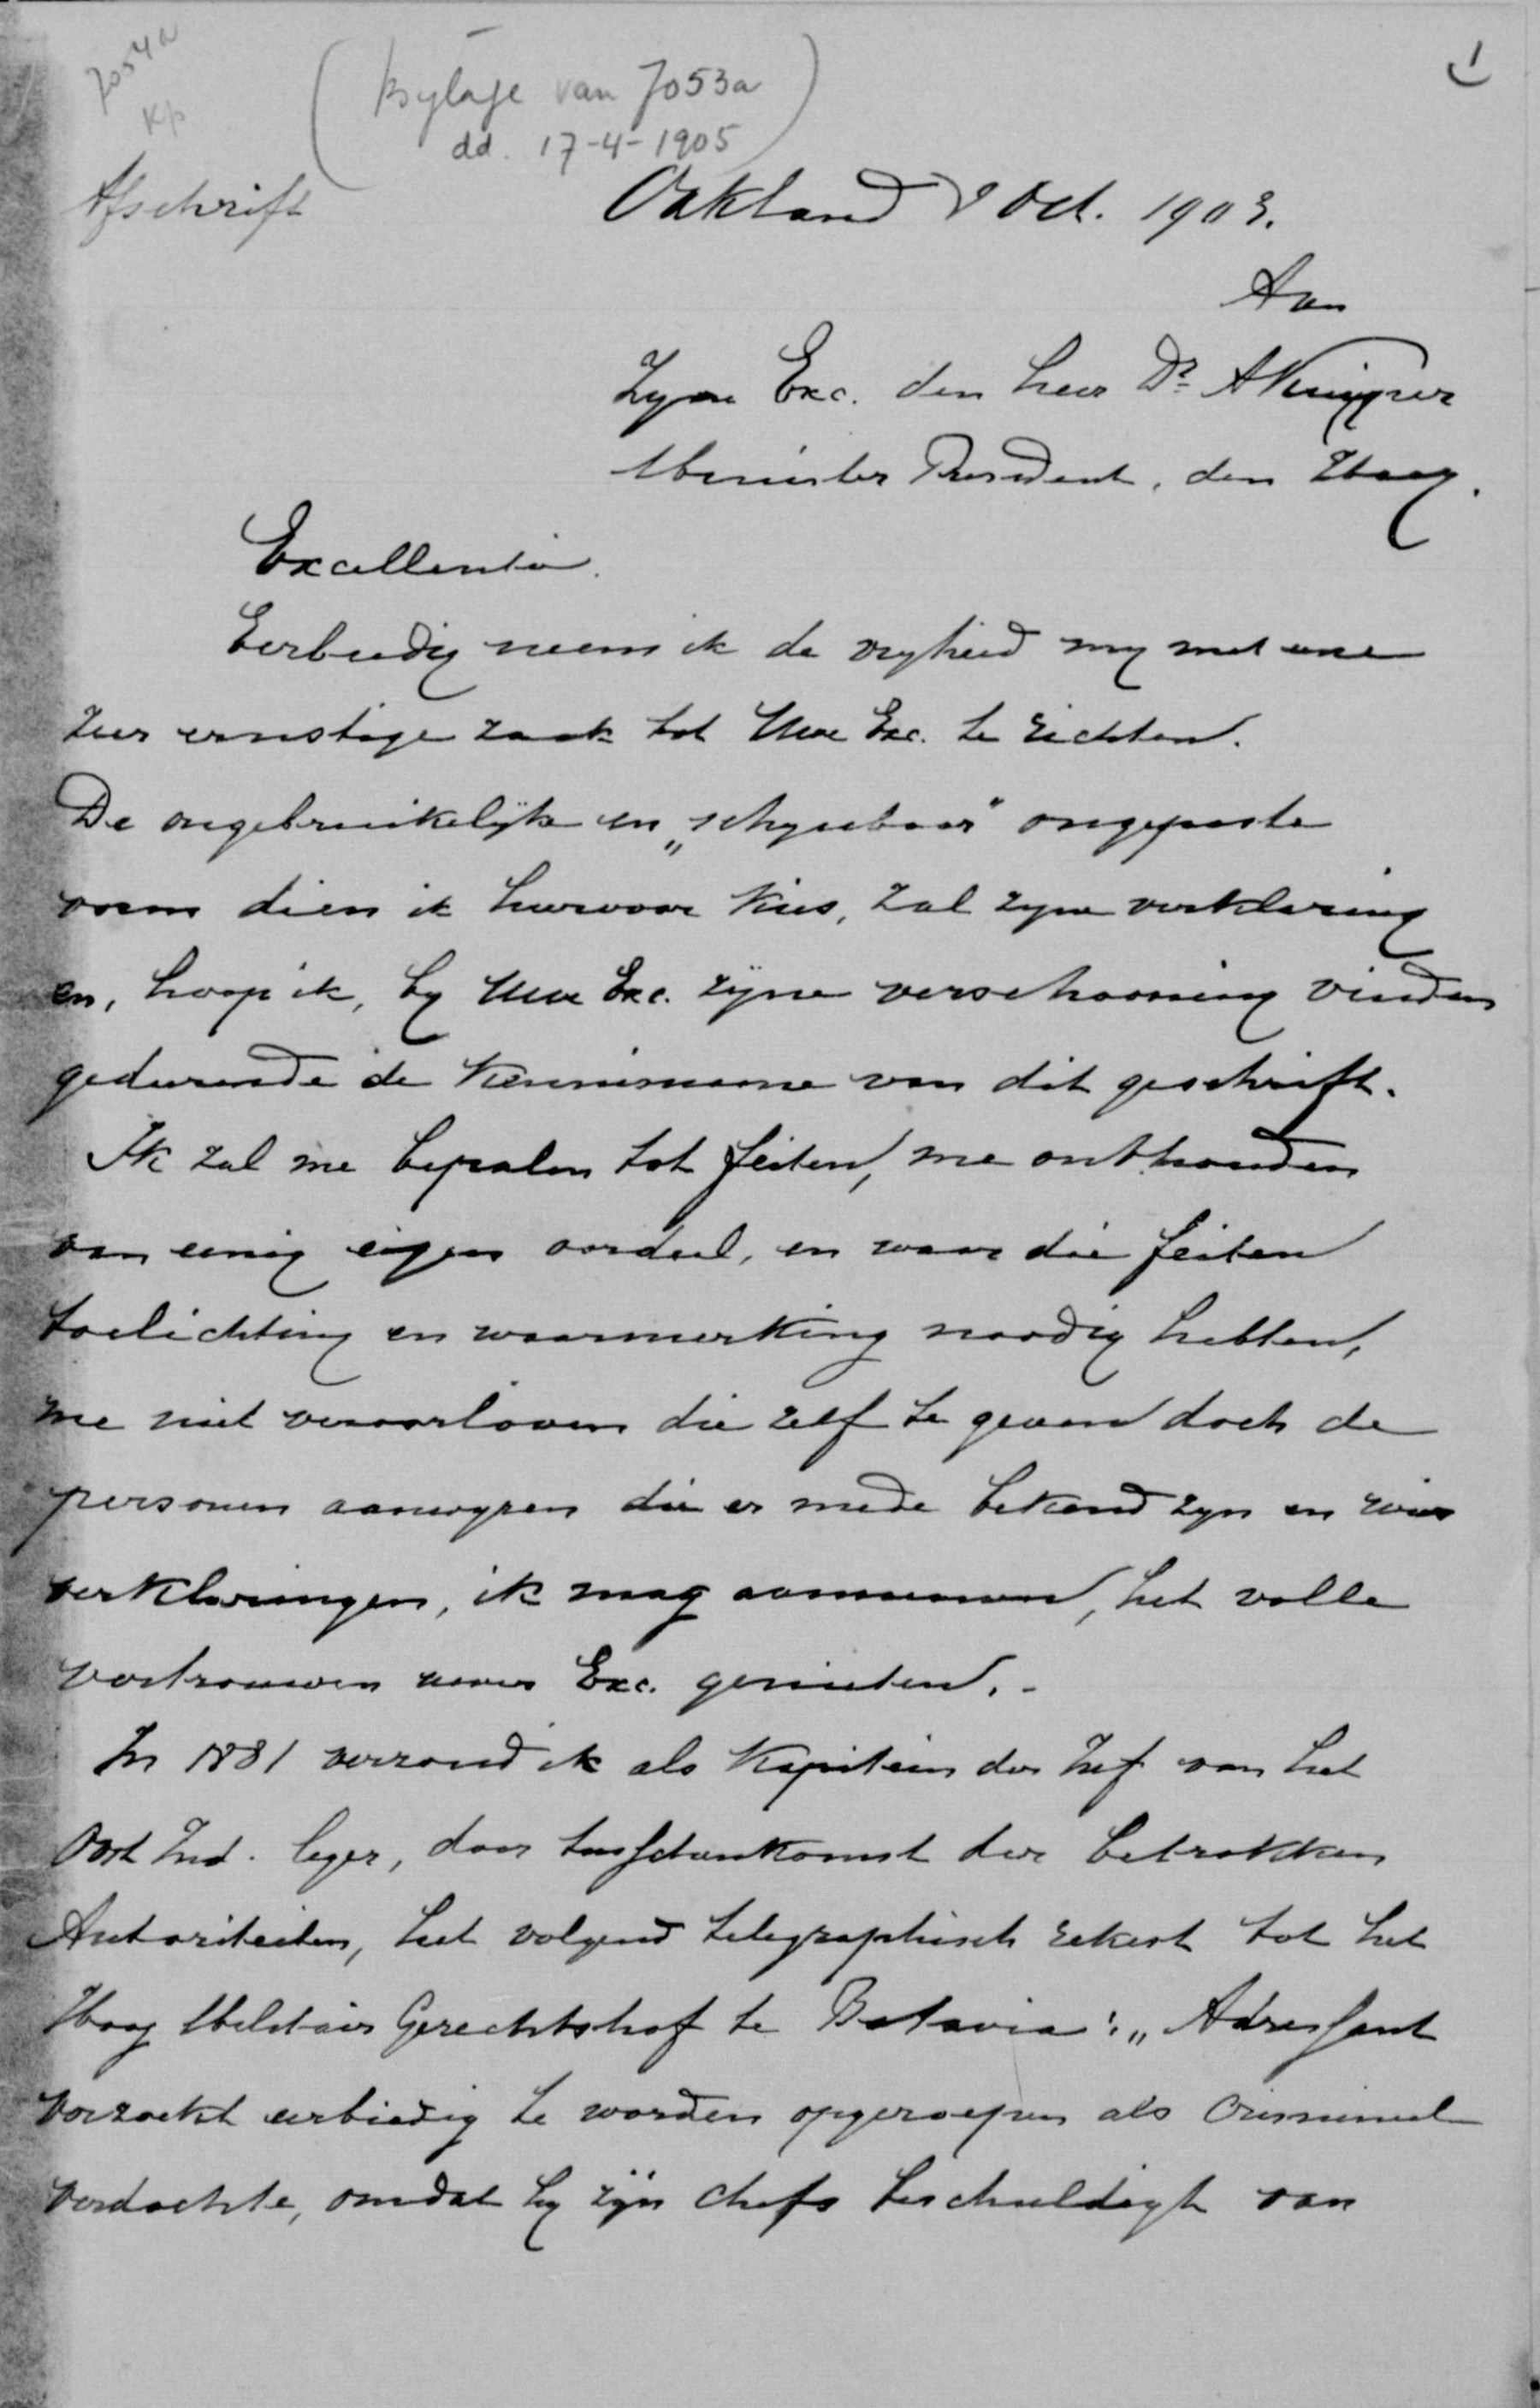 7054a
Kp
(Bylage van 7053a
dd. 17-4-1905)
1
Afschrift
Oakland 8 Oct. 1903.
Aan
Zyne Exc. den heer Dr A Kuijper
Minister President, den Haag.
Excellentie.
Eerbiedig neem ik de vryheid my met eene
zeer ernstige zaak tot Uwe Exc. te richten.
De ongebruikelijke en „schynbaar" ongepaste
vorm dien ik hiervoor kies, zal zyne verklaring
en, hoop ik, by Uwe Exc. zijne verschooning vinden
gedurende de kennisname van dit geschrift.
Ik zal me bepalen tot feiten, me onthouden
van eenig eigen oordeel, en waar die feiten
toelichting en waarmerking noodig hebben,
me niet veroorloven die zelf te geven doch de
personen aanwyzen die er mede bekend zyn en wier
verklaringen, ik mag aannemen, het volle
vertrouwen uwer Exc. genieten.-
In 1881 verzond ik als Kapitein der Inf van het
Oost Ind. leger, door tusschenkomst der betrokken
Autoriteiten, het volgend telegraphisch rekest tot het
Hoog Militair Gerechtshof te Batavia: „Adressant
verzoekt eerbiedig te worden opgeroepen als crimineel
verdachte, omdat hy zijn chefs beschuldigt van